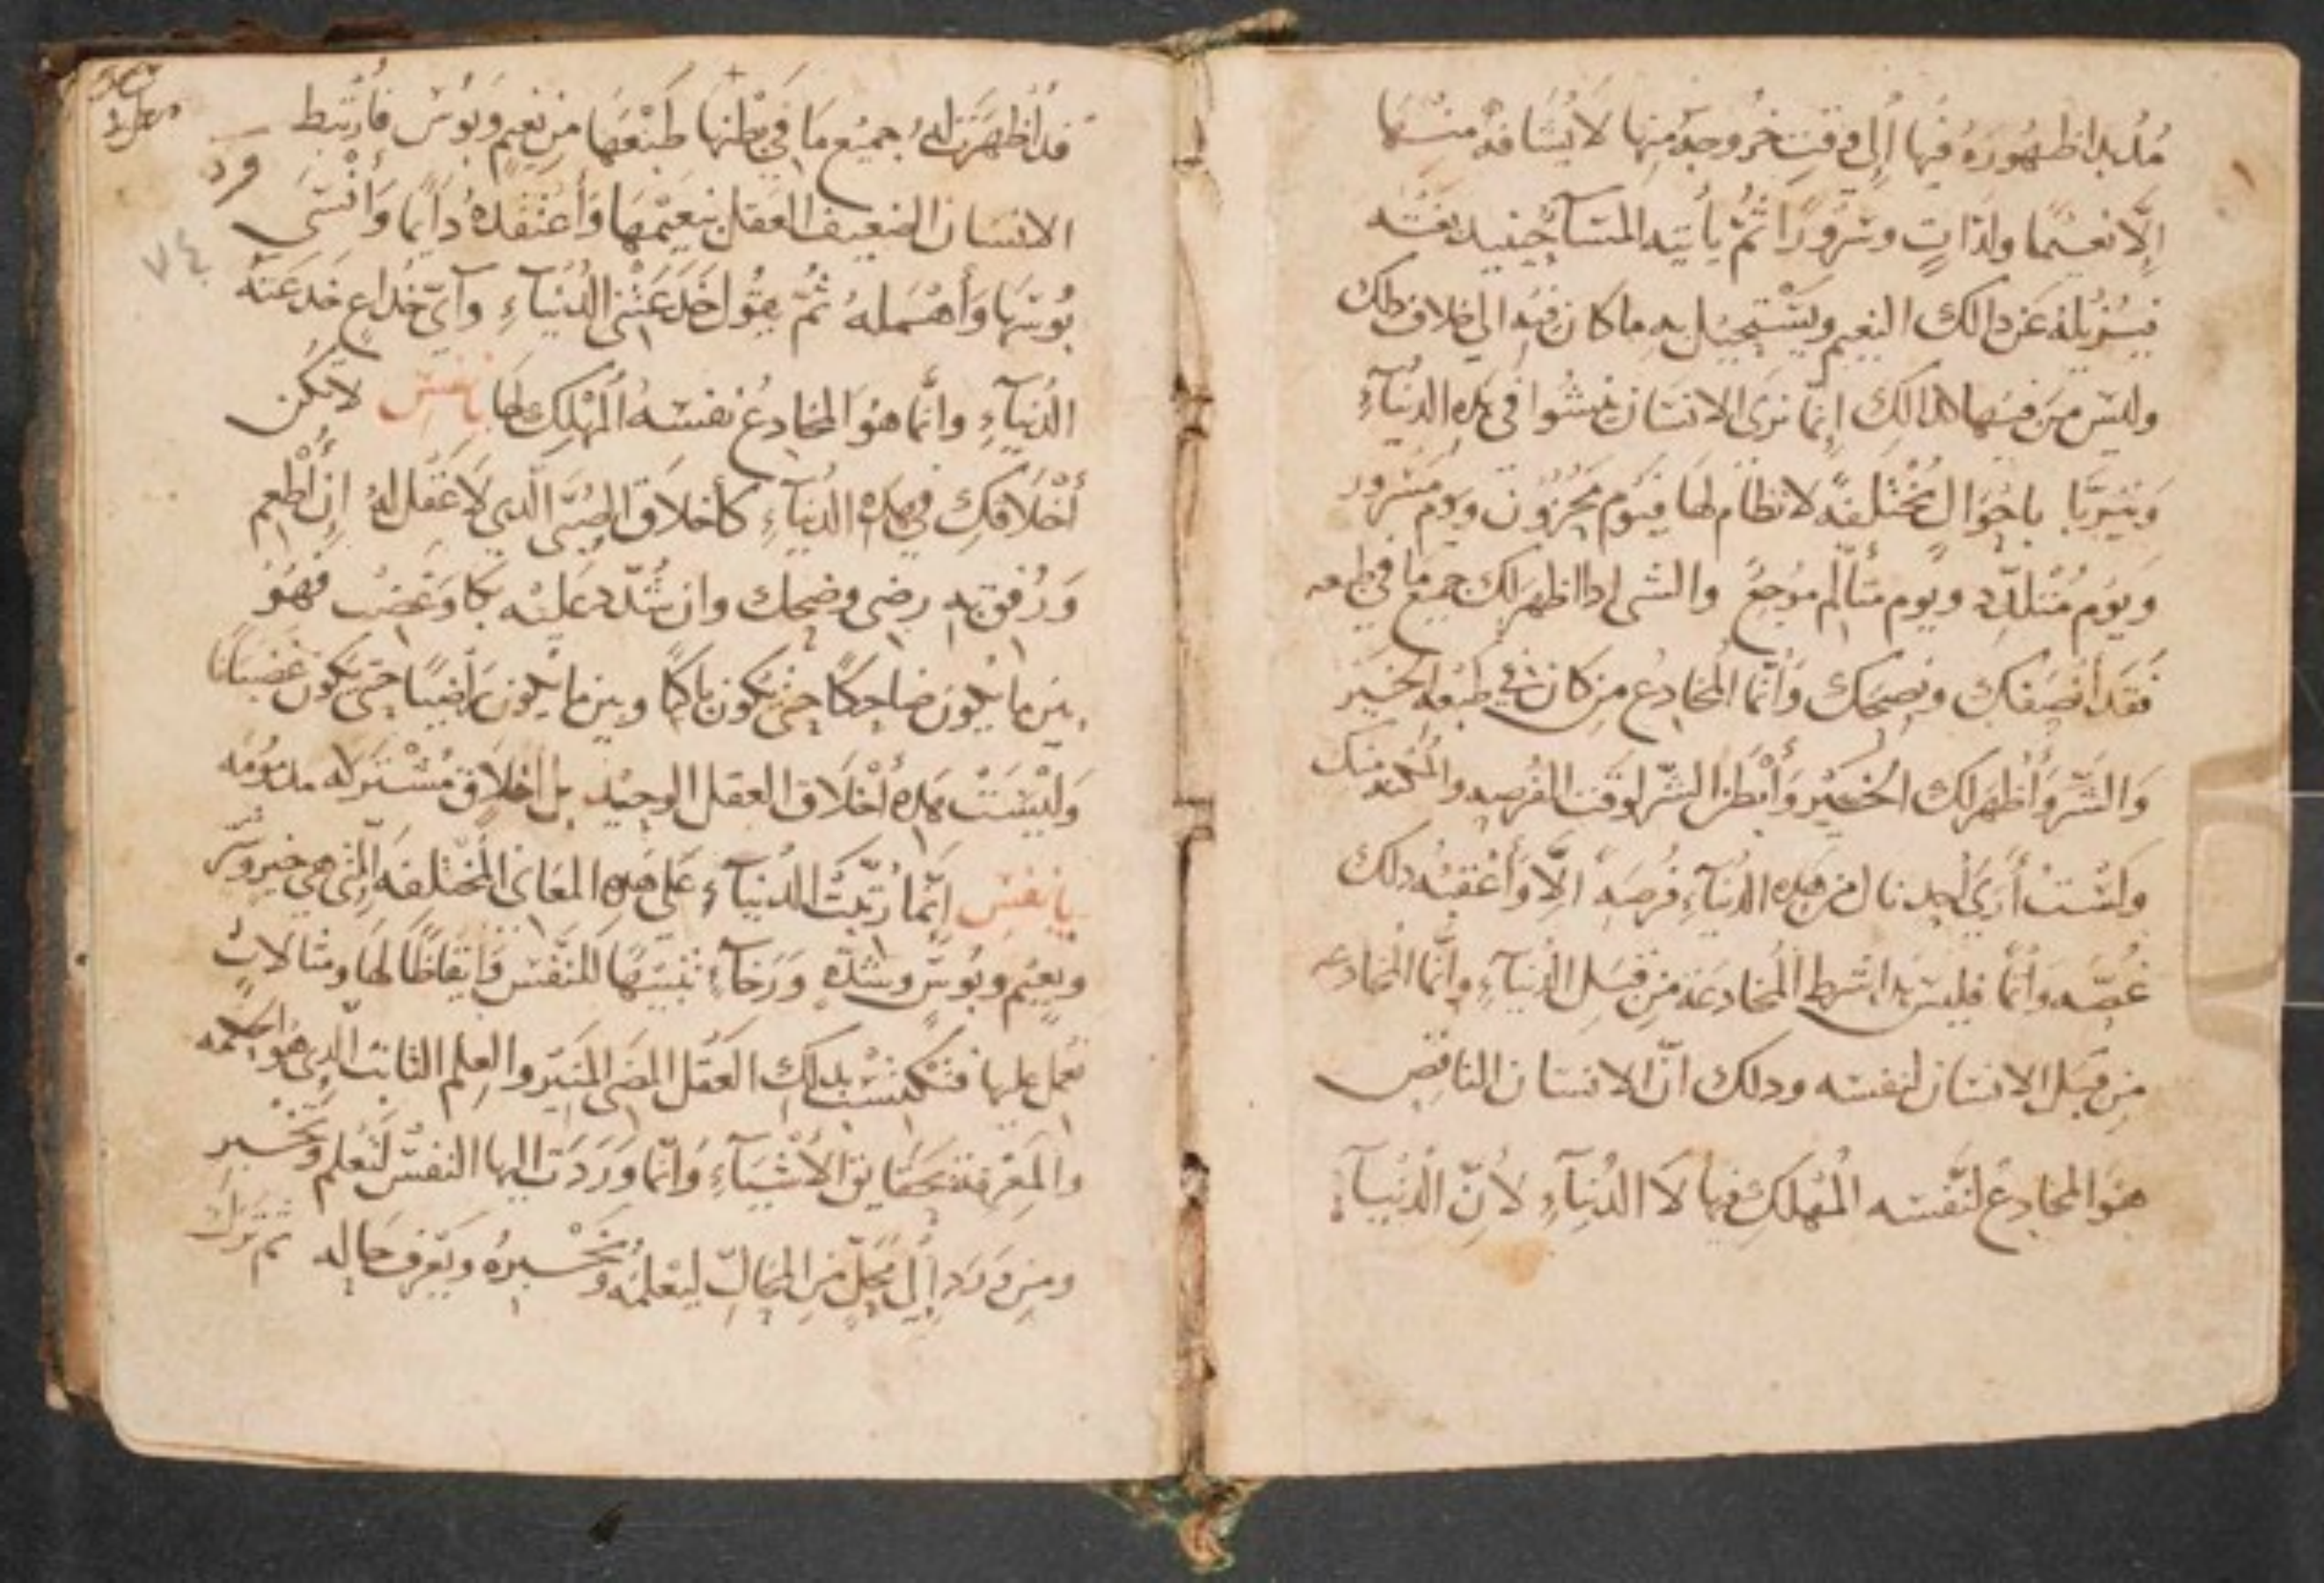 مُند بدا ظهُورَهُ فيها إلى وقتِ خرُوجهُ منها لا يُشافهُ منها
إلّا نعيمًا ولذاتٍ وسُرُورًا ثُمَّ يأتيه المسآ حينيد بغته
فيُزيله عَن دالك النعيم ويَسْتحيل به ما كان فيه الى خلاف دلك
وليس من فيها كدالك إنما نرَى الانسَان ينشُوا في هده الدنيآءِ
وَيتربَّا باحْوَالٍ مُخْتلفهً لا نظام لها فيَوم مَحْزُون ويوم مَسْرُور
وَيوَم مُتْلدِّد ويوم متألّم مُوجعُ والشى ادا اظهر لك جميع ما في طبعه
فقد أنصَفك ونصحَك وَأنّما المُخادعُ من كان في طبْعه الخَير
وَالشَّر وَأظهَر لك الخَير وَأبْطن الشّر لوقت الفُرصه والمُكنه منك
ولسْتُ أرَي أحد نال من هَده الدُنيآءِ فُرصَهً الّا وَأعْقبهُ دلك
غُصَّه وَأنّمَا فليسَ بدا شرط المُخادعَة من قبَل الدُنيآءِ وإنَّما المُخادعه
مِن قبَل الانسَان لنفسَه ودلك انّ الانسَان الناقِص
هوَ المخادعُ لنَّفسَه المُهلك فيها لا الدُنيآءِ لأنّ الدُنيآءِ
قد أظهَرَت لهُ جميعُ مَا في بطنها طبْعهَا مِن نعيمٍ وَبوُس فارْتبط
الانسَان الضعيف العَقل بنعيمهَا وَأعتقدهُ دآيمًا وَأنسَى
بُوسَها وَأهْمله ثُمَّ يقوُل خَدعَتْني الدُنيآءِ وآيّ خداعٍ خدعَته
الدُنيآءِ وانّما هوَ المُخادعُ نفسَهُ المُهْلِك لها يا نفس لا تكن
أخْلاقك في هَدهِ الدُنيآءِ كأخلاق الصُبيّ الّدي لا عَقل لهُ إن أُطعِم
وَرُفق به رضى وضحك وان شُدّد عَليْه بكا وَغضبْ فهُوَ
بين ما يكون ضاحِكًا حتى يَكون باكيًا وبين ما يكون رَاضيًا حتى يَكون غضبَانًا
وَليْسَتْ هَده أخْلاق العقل الوحيد بل أخلاق مُشْتركه مدمُومَه
يا نفس إنّما رُتّبَت الدُنيآءِ عَلى هَده المعَاني المُختلفه التى هي خيرٍ وشر
ونعيمٍ وبوُسٍّ وشدّهٍ وَرَخآءٍ تنبيهًا للنَّفس وَإيقاظًا لها ومثالاتٍ
تعمل عليها فتَكتسب بدلك العَقل المضى المنَير والعِلم الثابت الّدِي هوَ الحكمه
والمَعْرفة بحَقايق الأشيَآءِ وَإنّما وَرَدَت اليها النفسْ لتَعلم وَتخْبر
ومن وَرَد إلى محَلّ مِن المحَالّ ليَعْلمهُ وَيُخْبرهُ ويَعرف حَاله ثم تَرَك
٧٤